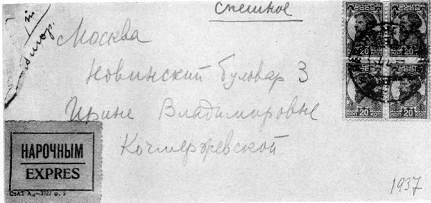 Спешное
Москва
Новинский бульвар 3
Ирине Владимировне
НАРОЧНЫМ
EXPRES
20 20
20 20
1937